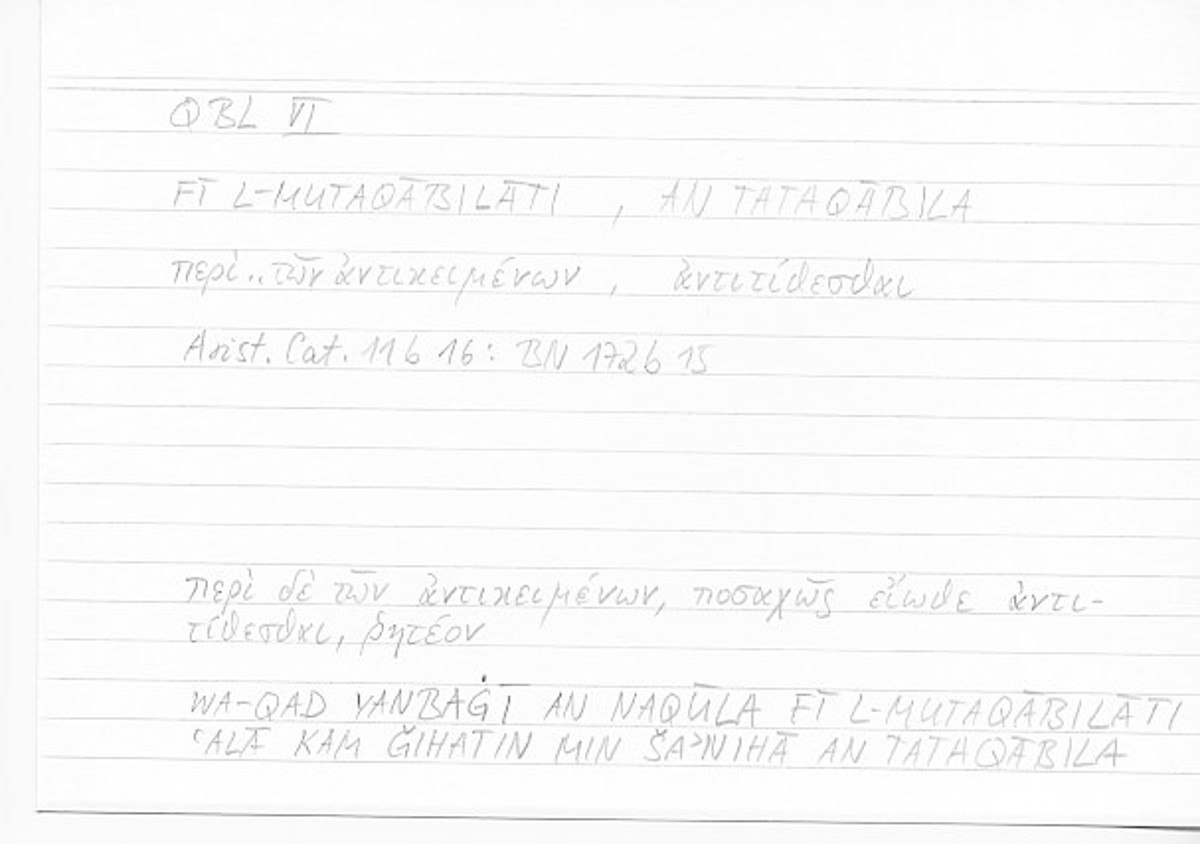 QBL VI
FĪ L-MUTAQĀBILĀTI , AN TATAQĀBILA
περὶ .. τῶν ἀντικειμένων , ἀντιτίθεσθαι
Arist. Cat. 11 b 16 : BN 172 b 15
περὶ δὲ τῶν ἀντικειμένων, ποσαχῶς εἴωθε ἀντι-
τίθεσθαι, ῥητέον
WA-QAD YANBAĠĪ AN NAQŪLA FĪ L-MUTAQĀBILĀTI
ʿALĀ KAM ǦIHATIN MIN ŠAʾNIHĀ AN TATAQĀBILA